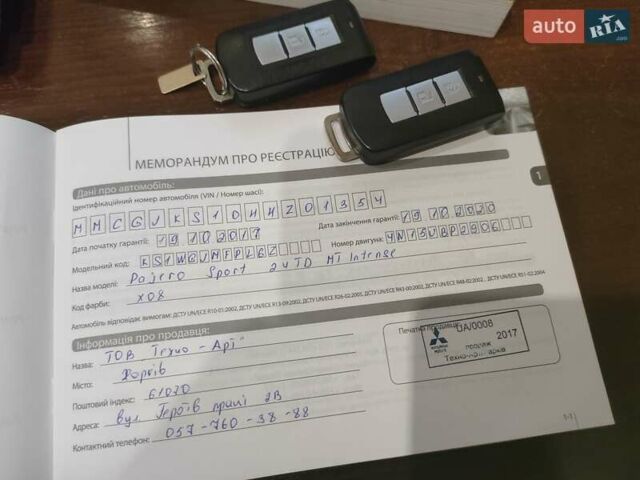 auto RIA.com
МЕМОРАНДУМ ПРО РЕЄСТРАЦІЮ
1
Дані про автомобіль:
Ідентифікаційний номер автомобіля (VIN / Номер шасі):
MMCGJKS10HHZ01354
Дата початку гарантії: 19 10 2017 Дата закінчення гарантії: 19 10 2020
Модельний код: Номер двигуна:
Назва моделі: Pajero Sport 2.4TD MT Intense
Код фарби: X08
Автомобіль відповідає вимогам: ДСТУ UN/ECE R10-01:2002, ДСТУ UN/ECE R13-09:2002, ДСТУ UN/ECE R26-02:2005, ДСТУ UN/ECE R43-00:2002, ДСТУ UN/ECE R48-02:2002, ДСТУ UN/ECE R51-02:2004
Інформація про продавця:
Назва: ТОВ Техно - Арт
Місто: Харків
Поштовий індекс: 61020
Адреса: вул Героїв праці 2В
Контактний телефон: 057-760-38-88
Печатка продавця:
UA/0008
2017
продаж
1-1